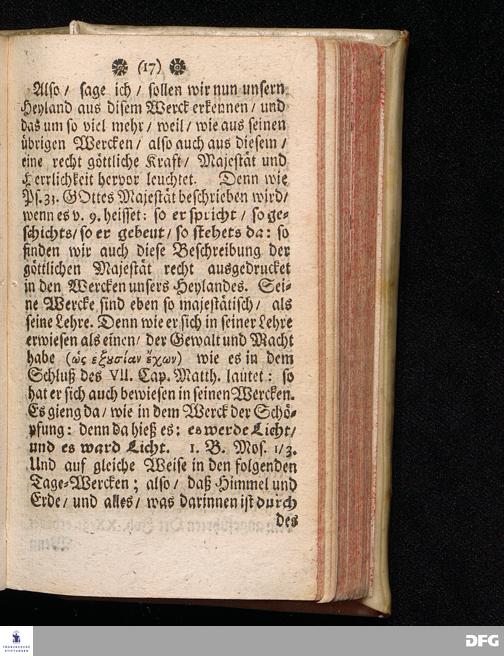 (17)
Also / sage ich / sollen wir nun unsern
Heyland aus disem Werck erkennen / und
das um so viel mehr / weil / wie aus seinen
übrigen Wercken / also auch aus diesem /
eine recht göttliche Kraft / Majestät und
Herrlichkeit hervor leuchtet. Denn wie
Ps. 33. GOttes Majestät beschrieben wird /
wenn es v. 9. heisset: so er spricht / so ge-
schichts / so er gebeut / so stehets da: so
finden wir auch diese Beschreibung der
göttlichen Majestät recht ausgedrucket
in den Wercken unsers Heylandes. Sei-
ne Wercke sind eben so majestätisch / als
seine Lehre. Denn wie er sich in seiner Lehre
erwiesen als einen / der Gewalt und Macht
habe (ὡς ἐξουσίαν ἔχων) wie es in dem
Schluß des VII. Cap. Matth. lautet: so
hat er sich auch bewiesen in seinen Wercken.
Es gieng da / wie in dem Werck der Schö-
pfung: denn da hieß es: es werde Licht /
und es ward Licht. 1. B. Mos. 1/3.
Und auf gleiche Weise in den folgenden
Tage-Wercken; also / daß Himmel und
Erde / und alles / was darinnen ist durch
des
FRANCKESCHE
STIFTUNGEN
DFG